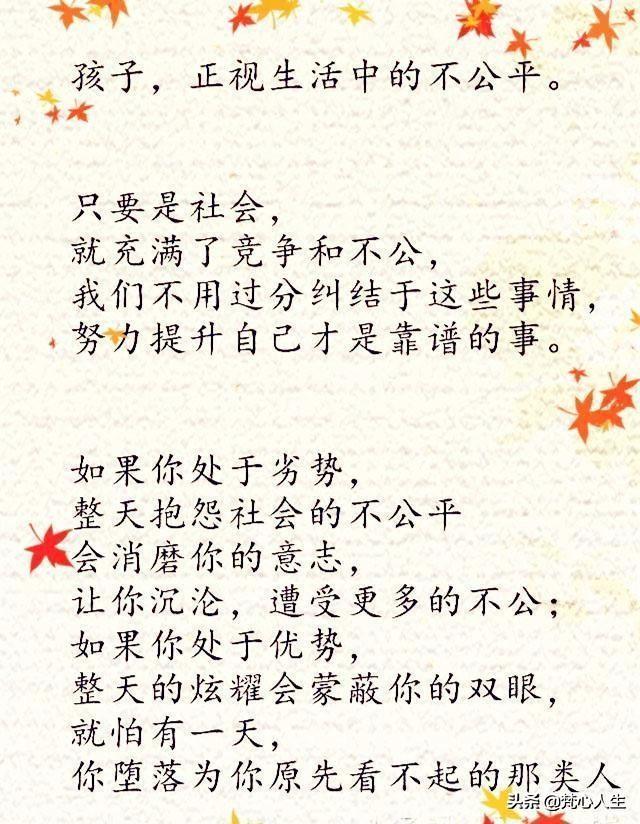 孩子，正视生活中的不公平。
只要是社会，
就充满了竞争和不公，
我们不用过分纠结于这些事情，
努力提升自己才是靠谱的事。
如果你处于劣势，
整天抱怨社会的不公平
会消磨你的意志，
让你沉沦，遭受更多的不公；
如果你处于优势，
整天的炫耀会蒙蔽你的双眼，
就怕有一天，
你堕落为你原先看不起的那类人
头条 @梵心人生